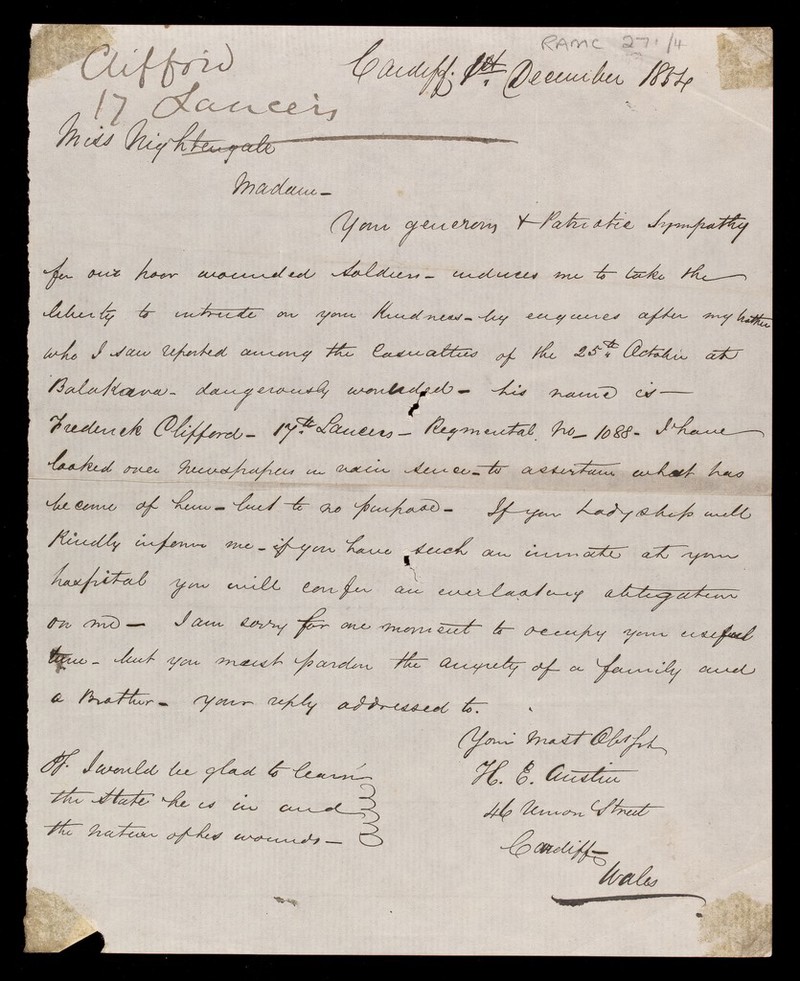 RAMC 271/4
Clifford
17 Lancers
Cardiff. 1st December 1854
Miss Nightengale
Madam -
Your generous & Patriotic Sympathy
for our poor wounded Soldiers - induces me to take the
liberty to intrude on your Kindness - by enquires after my brother
who I saw reported among the Casualties of the 25th October at
Balakava - dangerously wounded - his name is -
Frederick Clifford - 17th Lancers - Regmental No - 1088 - I have
looked over Newspapers in vain sence - to assertain what has
become of him - but to no purpose - If your Ladyship will
Kindly inform me - if you have such an inmate at your
hospital you will confer an everlasting obligation
on me - I am sorry for one moment to occupy your useful
time - but you must pardon the anxiety of a family and
a Brother - your reply addressed to.
Your Most Obt Svt
H. E. Austin
46 Union Street
Cardiff
Wales
PS. I would be glad to learn
the state he is in and
the nature of his wounds -